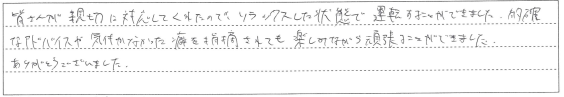 皆さんが親切に対応してくれたので、リラックスした状態で運転することができました。的確
なアドバイスや気付かなかった癖を指摘されても楽しみながら頑張ることができました。
ありがとうございました。